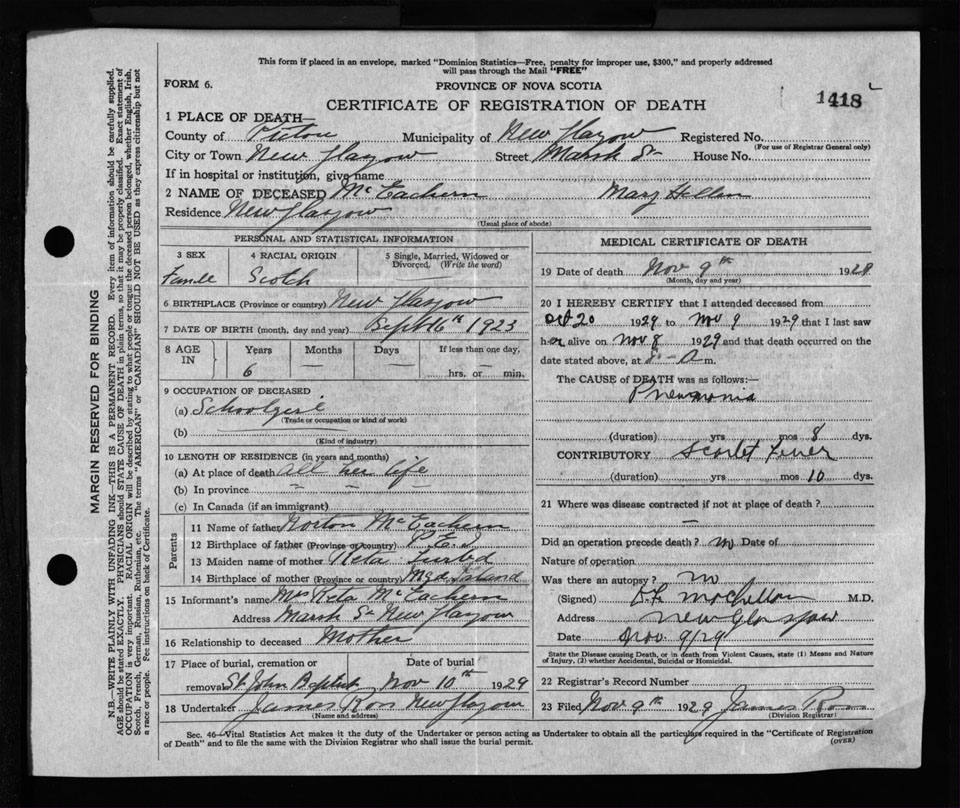 This form if placed in an envelope, marked "Dominion Statistics—Free, penalty for improper use, $300," and properly addressed
will pass through the Mail "FREE"
FORM 6.
PROVINCE OF NOVA SCOTIA
1418
CERTIFICATE OF REGISTRATION OF DEATH
1 PLACE OF DEATH—
County of Pictou Municipality of New Glasgow Registered No.
(For use of Registrar General only)
City or Town New Glasgow Street Marsh St House No.
If in hospital or institution, give name
2 NAME OF DECEASED McEachern Mary Hellen
Residence New Glasgow
(Usual place of abode)
PERSONAL AND STATISTICAL INFORMATION
3 SEX 4 RACIAL ORIGIN 5 Single, Married, Widowed or
Divorced. (Write the word)
Female Scotch
6 BIRTHPLACE (Province or country) New Glasgow
7 DATE OF BIRTH (month, day and year) Sept 16th 1923
8 AGE IN Years Months Days If less than one day,
6 — — hrs. or — min.
9 OCCUPATION OF DECEASED
(a) Schoolgirl
(Trade or occupation or kind of work)
(b)
(Kind of industry)
10 LENGTH OF RESIDENCE (in years and months)
(a) At place of death All her life
(b) In province – – –
(c) In Canada (if an immigrant)
Parents
11 Name of father Norton McEachern
12 Birthplace of father (Province or country) P.E.I
13 Maiden name of mother Reta
14 Birthplace of mother (Province or country) Mgd Island
15 Informant's name Mrs Reta McEachern
Address Marsh St New Glasgow
16 Relationship to deceased Mother
17 Place of burial, cremation or Date of burial
removal St. John Baptist Nov 10th 1929
18 Undertaker James Ross New Glasgow
(Name and address)
MEDICAL CERTIFICATE OF DEATH
19 Date of death Nov 9th 1929
(Month, day and year)
20 I HEREBY CERTIFY that I attended deceased from
Oct 20 1929 to Nov 9 1929 that I last saw
her alive on Nov. 8 1929 and that death occurred on the
date stated above, at 8 – A m.
The CAUSE of DEATH was as follows:—
Pneumonia
(duration) yrs mos 8 dys.
CONTRIBUTORY Scarlet Fever
(duration) yrs mos 10 dys.
21 Where was disease contracted if not at place of death?
–
Did an operation precede death? no Date of
Nature of operation
Was there an autopsy? no
(Signed) M.D.
Address New Glasgow
Date Nov. 9/29
State the Disease causing Death, or in death from Violent Causes, state (1) Means and Nature
of Injury, (2) whether Accidental, Suicidal or Homicidal.
22 Registrar's Record Number
23 Filed Nov 9th 1929 James Ross
(Division Registrar)
Sec. 46—Vital Statistics Act makes it the duty of the Undertaker or person acting as Undertaker to obtain all the particulars required in the "Certificate of Registration
of Death" and to file the same with the Division Registrar who shall issue the burial permit.
(OVER)
MARGIN RESERVED FOR BINDING
N.B.—WRITE PLAINLY WITH UNFADING INK—THIS IS A PERMANENT RECORD. Every item of information should be carefully supplied.
AGE should be stated EXACTLY. PHYSICIANS should STATE CAUSE OF DEATH in plain terms, so that it may be properly classified. Exact statement of
OCCUPATION is very important. RACIAL ORIGIN will be described by stating to what people or tongue the deceased person belonged, whether English, Irish,
Scotch, French, German, Russian, Ruthenian, etc. The terms "AMERICAN" or "CANADIAN" SHOULD NOT BE USED as they express citizenship but not
a race or people. See instructions on back of Certificate.